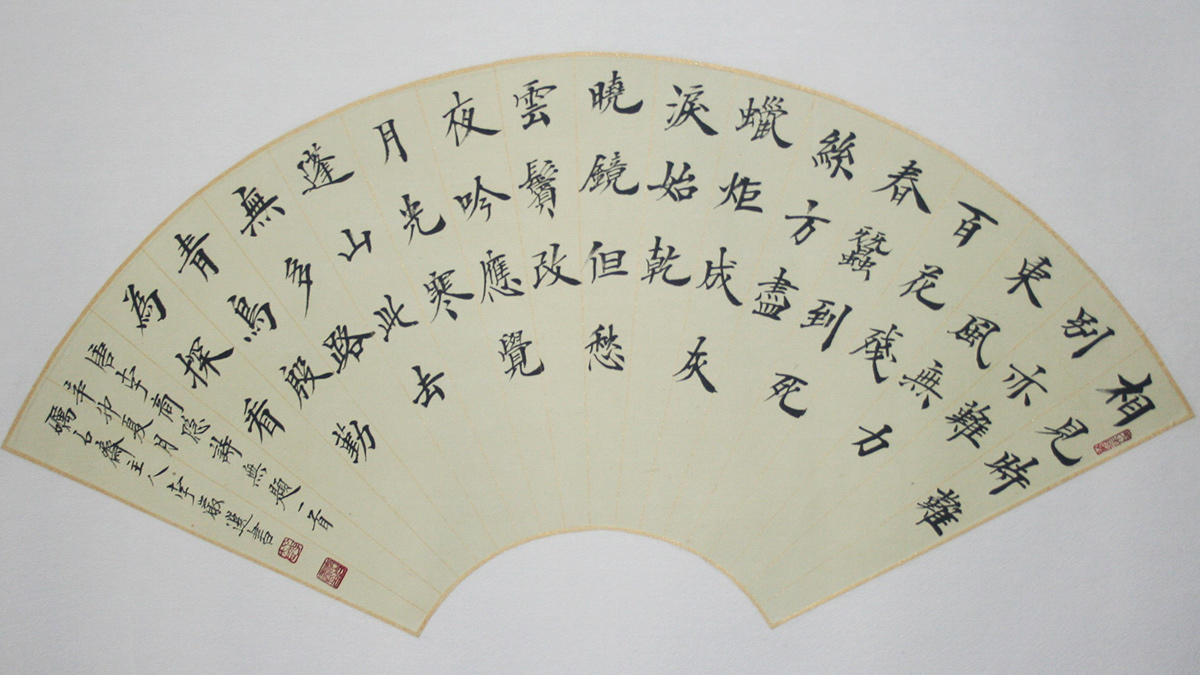 相見時難
別亦難
東風無力
百花殘
春蠶到死
絲方盡
蠟炬成灰
淚始乾
曉鏡但愁
雲鬢改
夜吟應覺
月光寒
蓬山此去
無多路
青鳥殷勤
為探看
唐李商隱詩無題一首
辛卯夏月
礪石齋主人李書